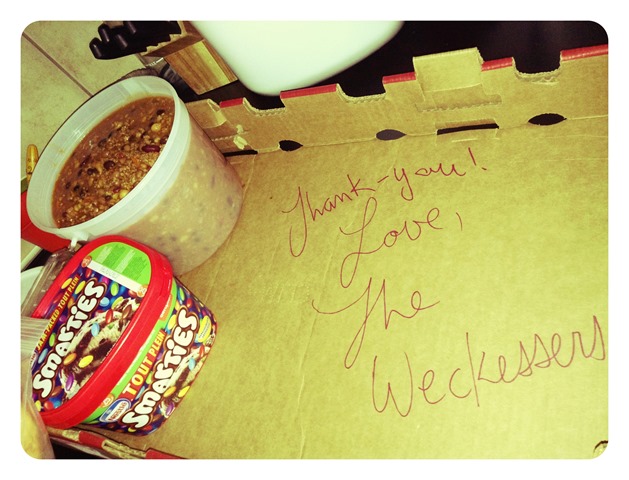 Thank-you!
Love,
The
Weckessers
SMARTIES
TOUT PLEIN
SMARTIES